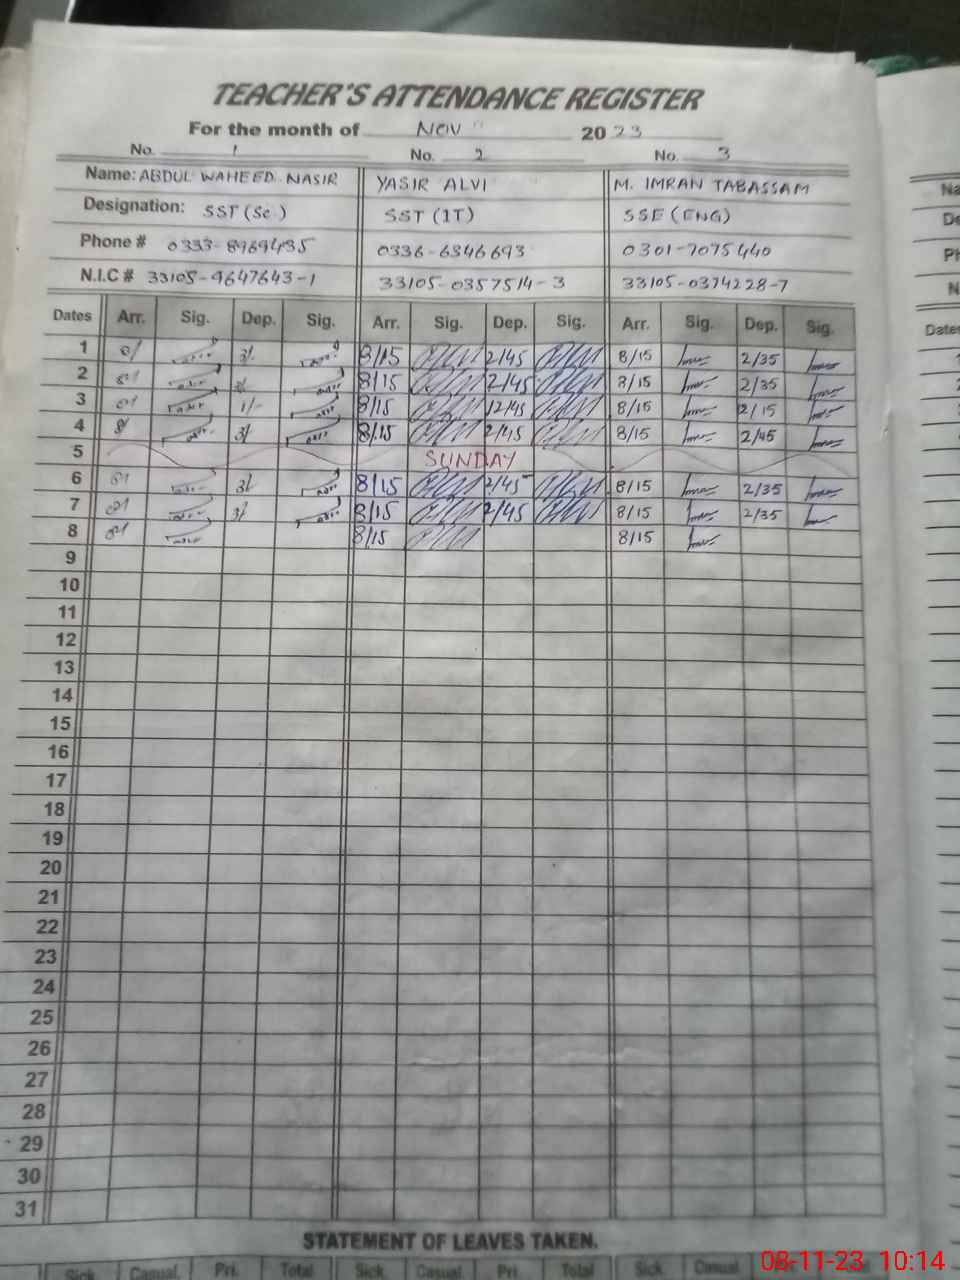 TEACHER'S ATTENDANCE REGISTER
For the month of NOV 2023
No. 1 No. 2 No. 3
Name: ABDUL WAHEED NASIR YASIR ALVI M. IMRAN TABASSAM
Designation: SST (Sc) SST (IT) SSE (ENG)
Phone # 0333-8969435 0336-6346693 0301-7075440
N.I.C # 33105-9647643-1 33105-0357514-3 33105-0374228-7
Dates Arr. Sig. Dep. Sig. Arr. Sig. Dep. Sig. Arr. Sig. Dep. Sig.
1 8/ 3/ 8/15 2/45 8/15 2/35
2 3/ 8/15 2/45 8/15 2/35
3 1/- 8/15 12/45 8/15 2/15
4 8/ 3/ 8/15 2/45 8/15 2/45
5 SUNDAY
6 3/ 8/15 2/45 8/15 2/35
7 3/ 8/15 2/45 8/15 2/35
8 8/15 8/15
9
10
11
12
13
14
15
16
17
18
19
20
21
22
23
24
25
26
27
28
29
30
31
STATEMENT OF LEAVES TAKEN.
Sick Casual. Pri. Total Sick. Casual. Pri. Total Sick Casual.
08-11-23 10:14